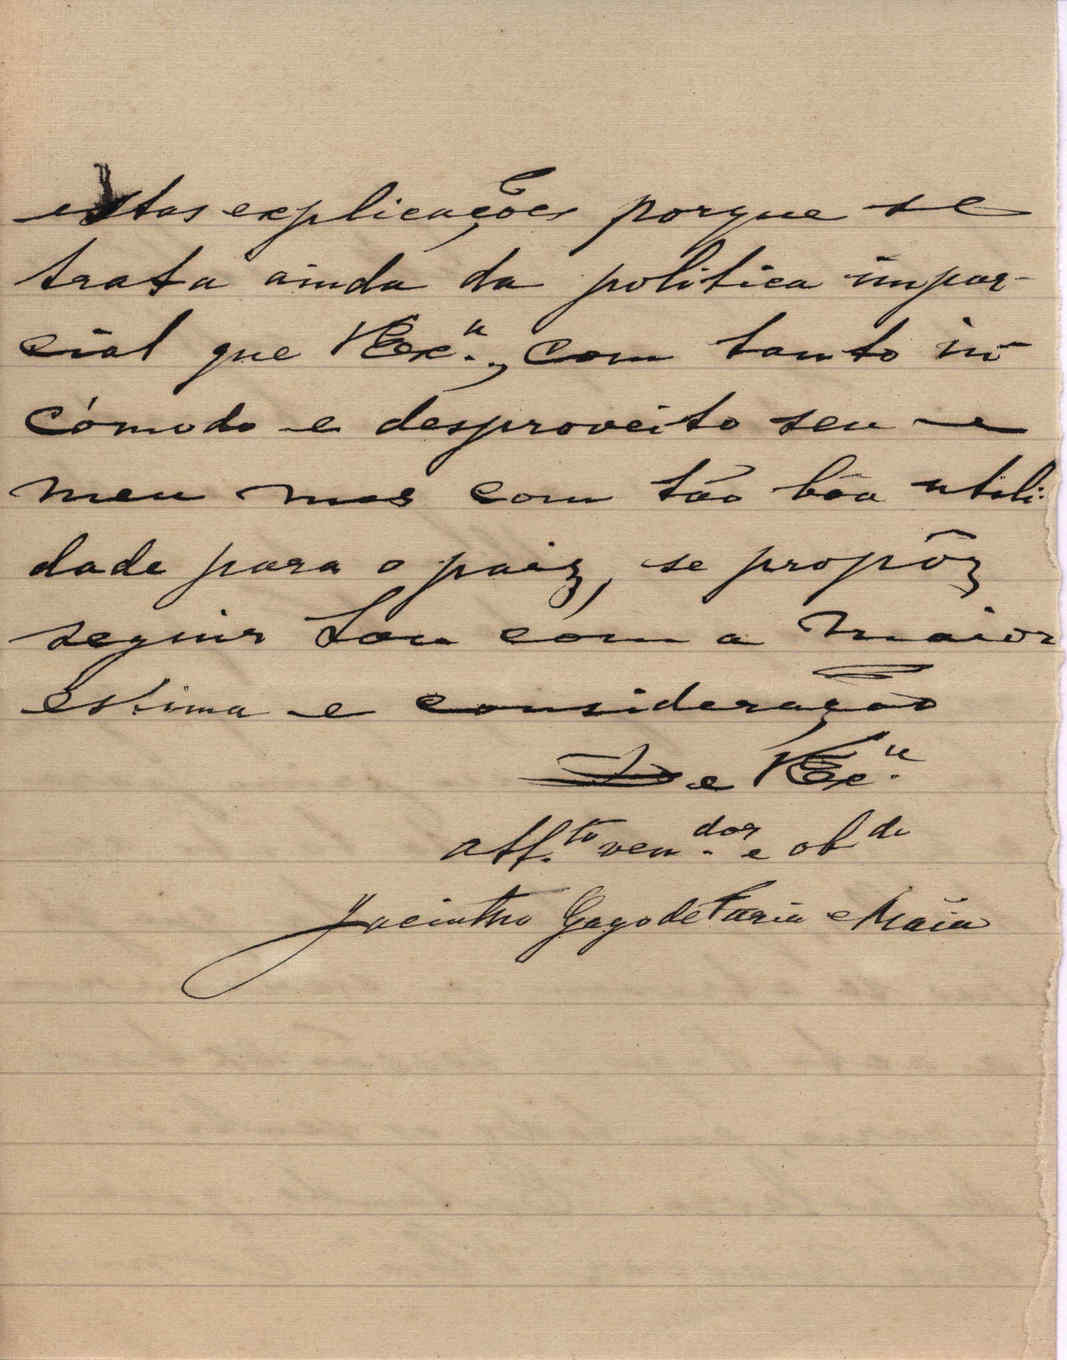 estas explicações porque se
trata ainda da politica impar-
cial que VExª., com tanto in
cómodo e desproveito seu e
meu mas com tão bôa utili-
dade para o paiz, se propôz
seguir Sou com a maior
estima e consideração
De VExª.
attº. venºr. e obdº
Jacintho Gago de Faria e Maia